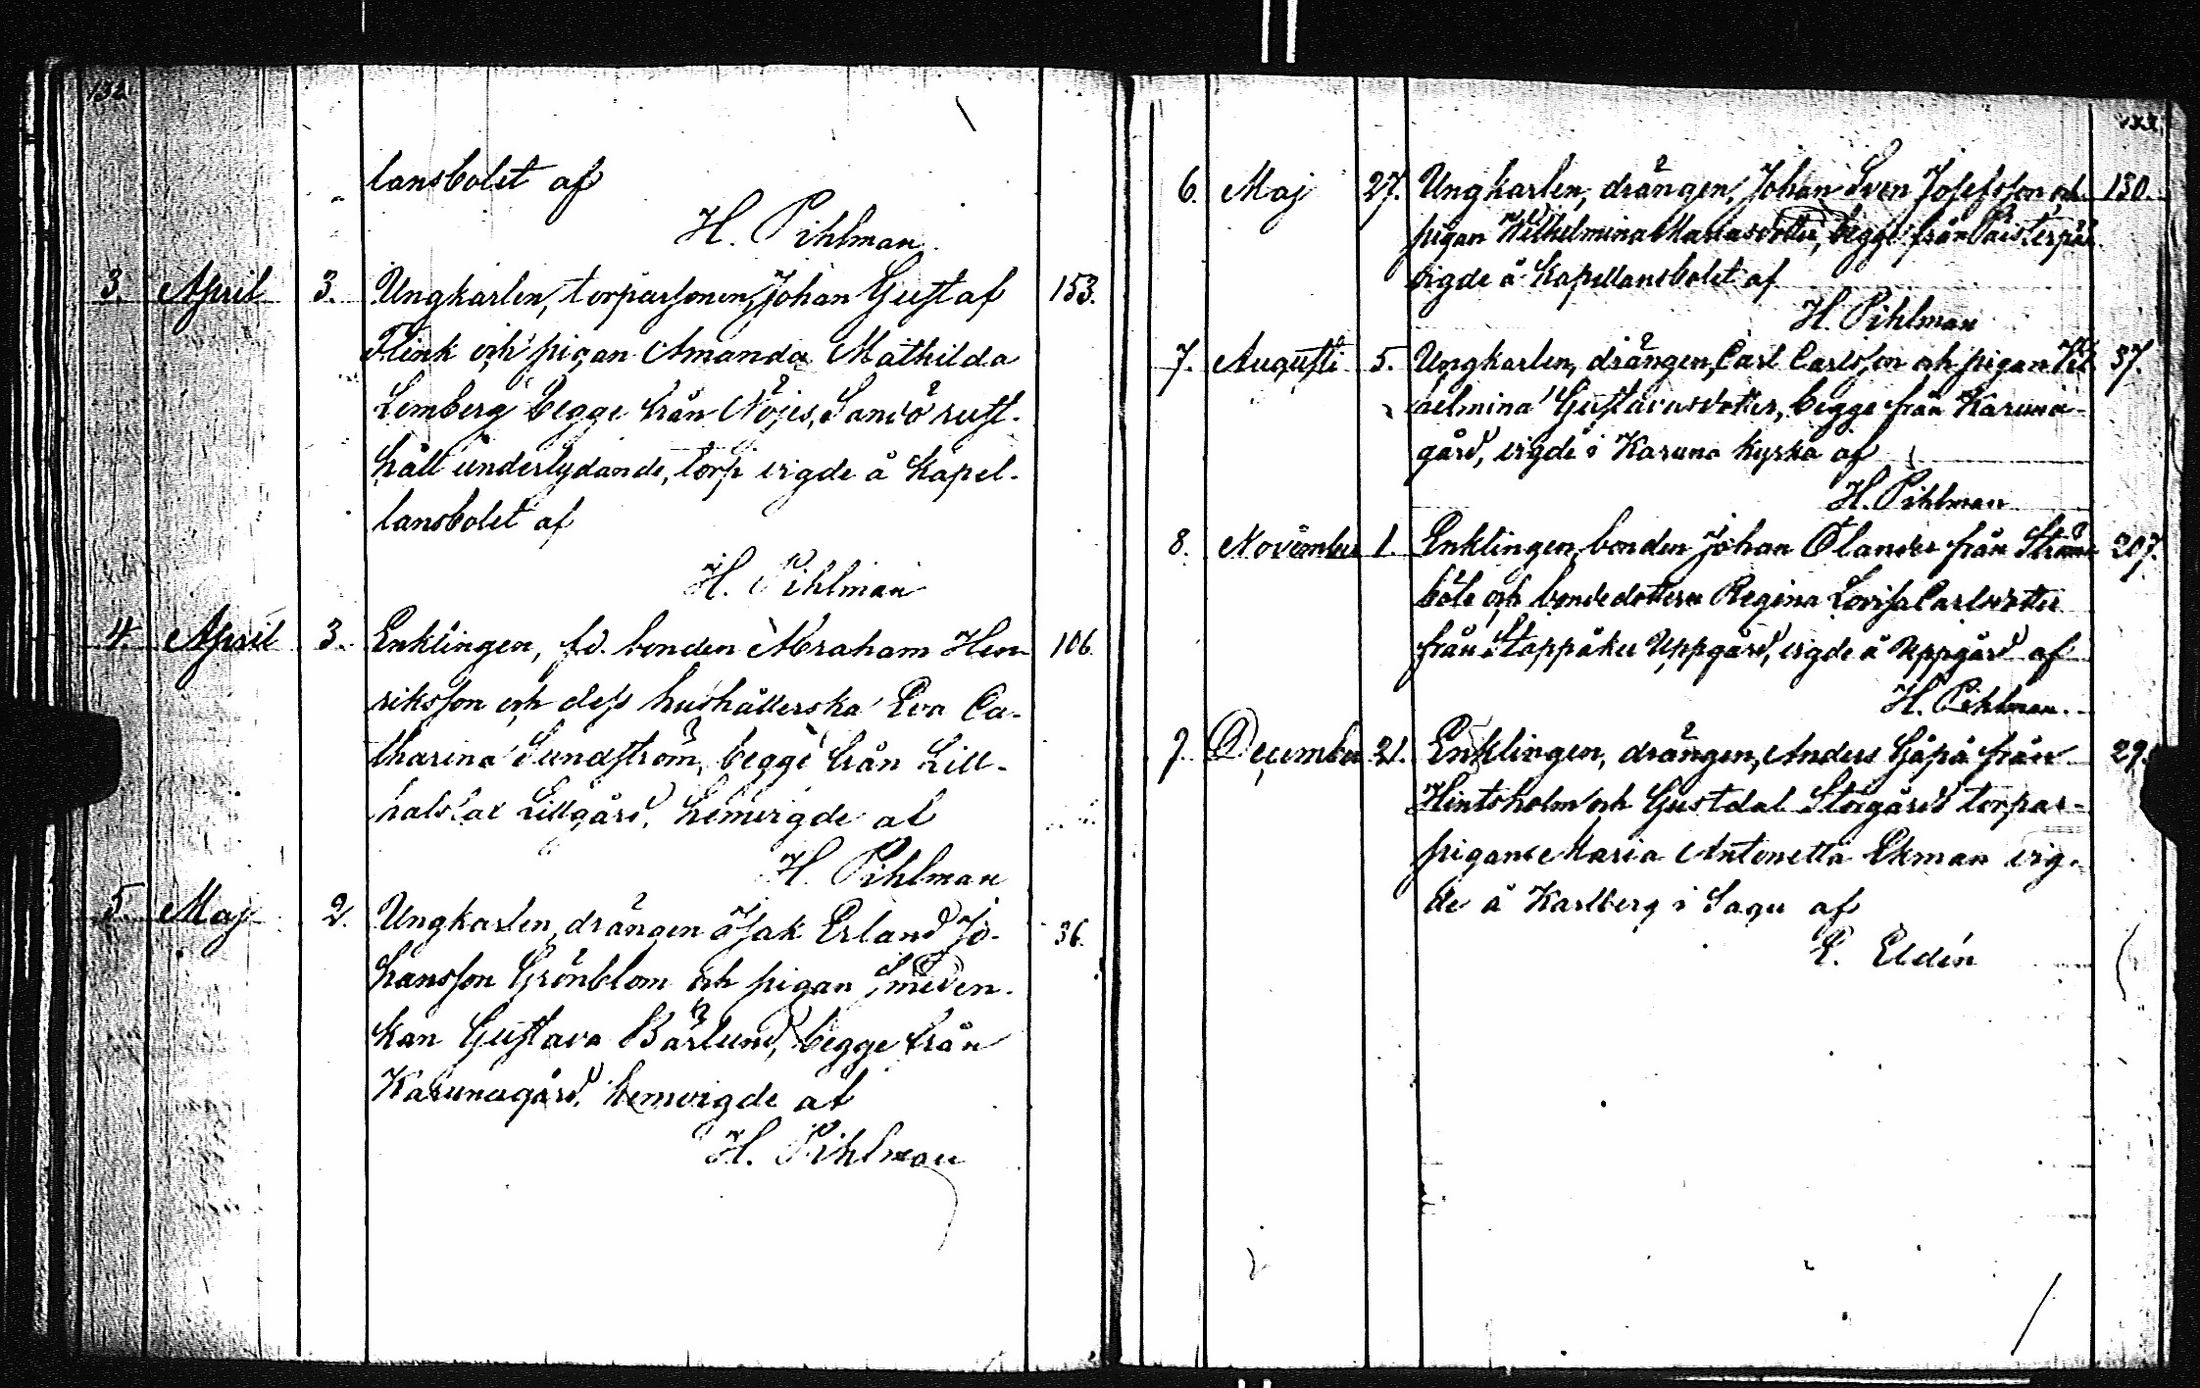 132.
lansbolet af
H. Pihlman.
3. April 3. Ungkarlen, torparsonen, Johan Gustaf 153.
Flink och pigan Amanda Mathilda
Lemberg begge från Nöjes, Sandö rust-
håll underlydande, torp vigde å Kapel-
lansbolet af
H. Pihlman
4. April 3. Enklingen, fd. bonden Abraham Hen- 106.
riksson och dess hushållerska Eva Ca-
tharina Sundström, begge från Lill-
halslax Lillgård, hemvigde af
H. Pihlman
5. Maj 2. Ungkarlen, drängen Isak Erland Jo- 36.
hansson Grönblom och pigan, smeden-
kan Gustava Bärlund, begge från
Karunagård, hemvigde af
H. Pihlman
133.
6. Maj 27. Ungkarlen, drängen, Johan Sven Josefsson och 130.
pigan Wilhelmina begge från
vigde å Kapellansbolet af
H. Pihlman
7. Augusti 5. Ungkarlen, drängen, Carl Carlsson och pigan 37.
helmina Gustavasdotter, begge från Karuna
gård, vigde i Karuna kyrka af
H. Pihlman
8. November 1. Enklingen, bonden Johan Ölander från 207.
böle och bondedottern Regina Lovisa Carlsdotter
från Stappåker Uppgård, vigde å Uppgård af
H. Pihlman.
9. December 21. Enklingen, drängen, Anders från 29.
Hintsholm och Gustdal Storgårds torpar-
pigan Maria Antonetta Ekman vig-
de å Karlberg i Sagu af
E. Eldén